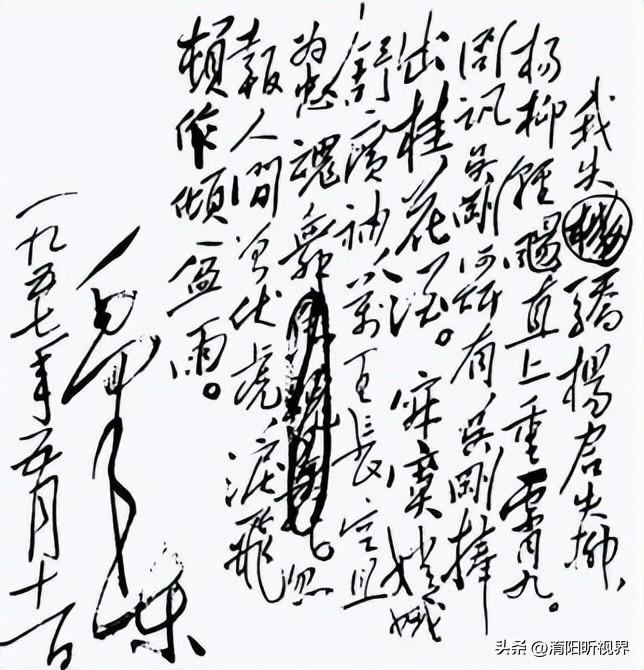 我失驕楊君失柳、
杨柳軽颺直上重霄九。
问讯吴刚何所有吴刚捧
出桂花酒。寂寞嫦娥
舒廣袖万里長空且
为忠魂舞。忽
報人間曾伏虎淚飛
頓作傾盆雨。
毛泽东
一九五七年五月十一日
头条 @淯阳昕视界